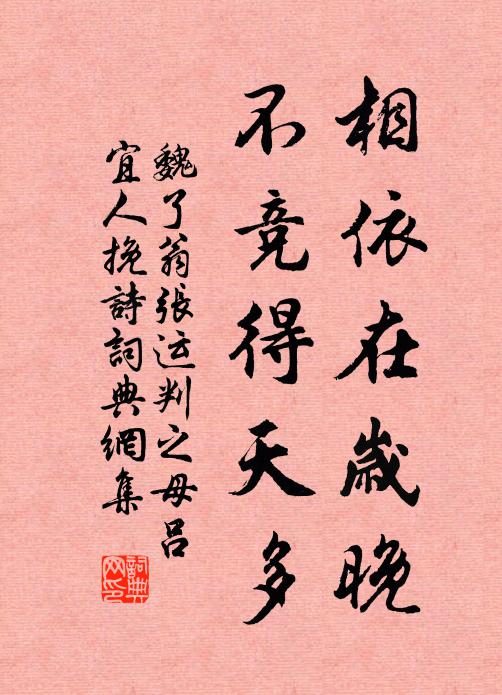 相依在歲晚
不竞得天多
魏了翁張运判之母吕
宜人挽詩詞典網集
詞典网印